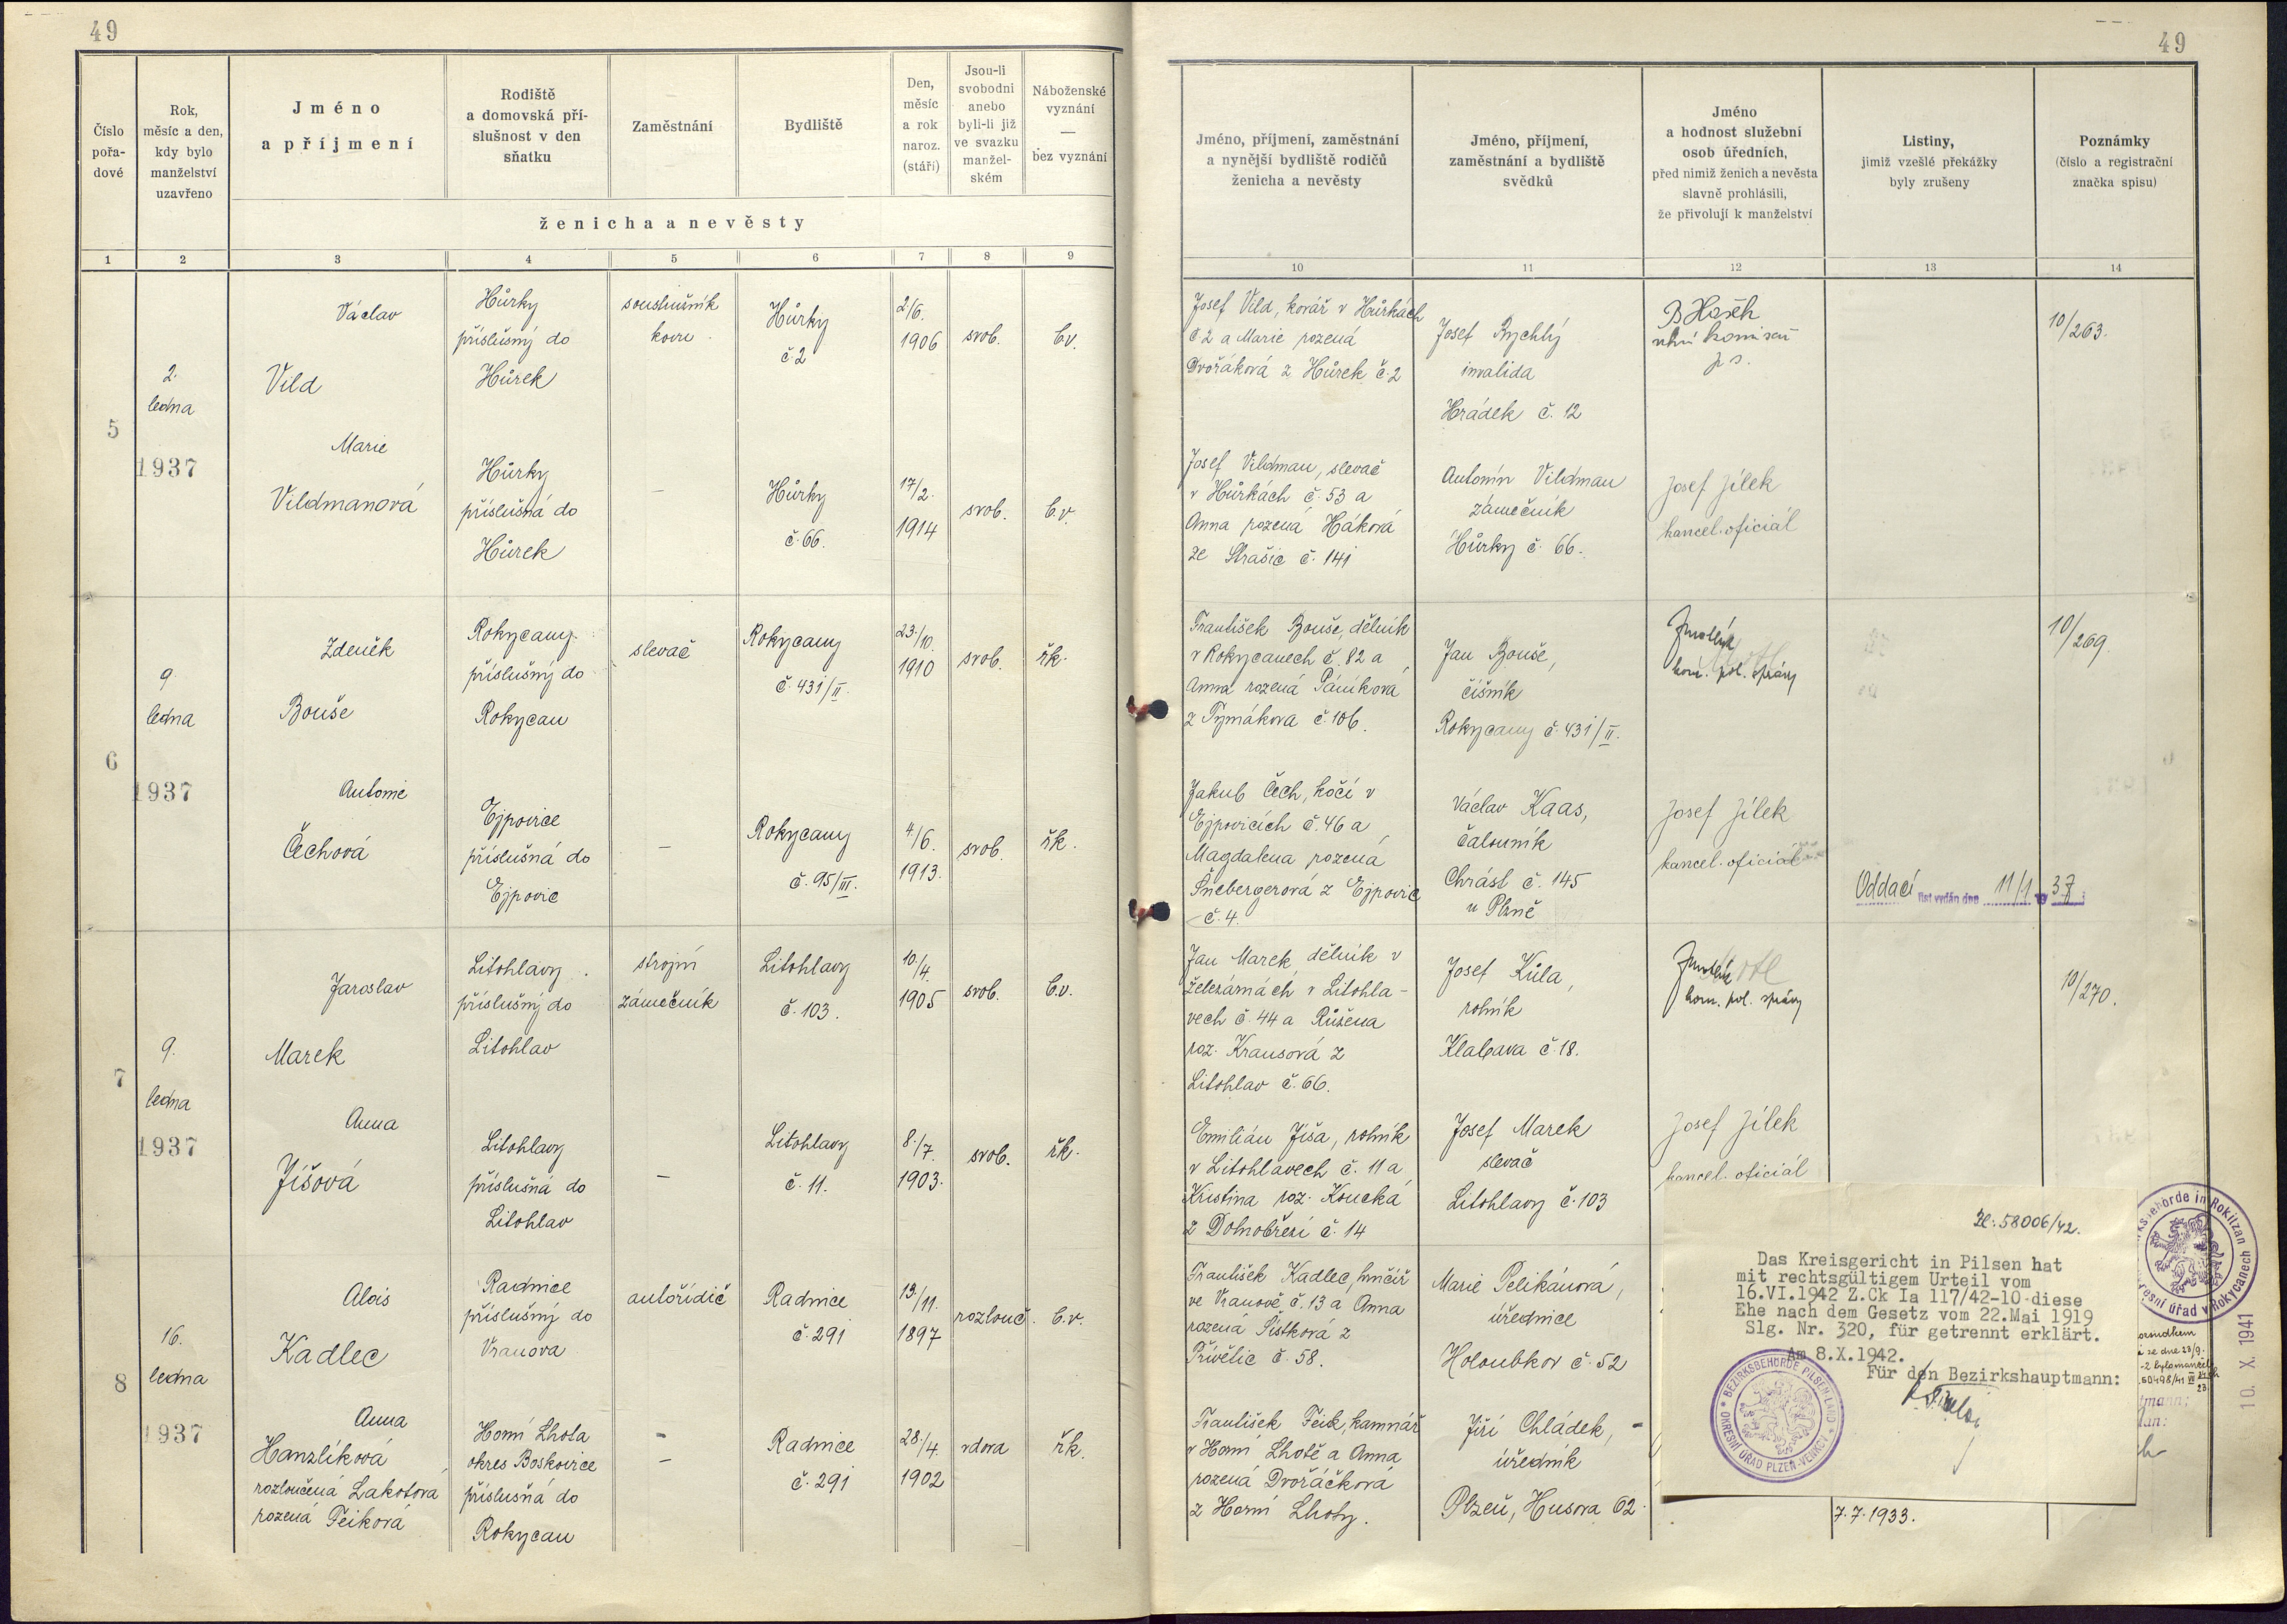 49
49
Číslo pořa- dové
Rok, měsíc a den, kdy bylo manželství uzavřeno
Jméno a příjmení
Rodiště a domovská pří- slušnost v den sňatku
Zaměstnání
Bydliště
Den, měsíc a rok naroz. (stáří)
Jsou-li svobodni anebo byli-li již ve svazku manžel- ském
Náboženské vyznání — bez vyznání
ženicha a nevěsty
Jméno, příjmení, zaměstnání a nynější bydliště rodičů ženicha a nevěsty
Jméno, příjmení, zaměstnání a bydliště svědků
Jméno a hodnost služební osob úředních, před nimiž ženich a nevěsta slavně prohlásili, že přivolují k manželství
Listiny, jimiž vzešlé překážky byly zrušeny
Poznámky (číslo a registrační značka spisu)
1 2 3 4 5 6 7 8 9 10 11 12 13 14
5
2. ledna 1937
Václav
Vild
Hůrky
příslušný do
Hůrek
soustružník
kovu
Hůrky
č 2
2/6.
1906
svob.
b.v.
Josef Vild, kovář v Hůrkách
č 2 a Marie rozená
Dvořáková z Hůrek č. 2
Josef Rychlý
invalida
Hrádek č. 12
10/263.
Marie
Vildmanová
Hůrky
příslušná do
Hůrek
—
Hůrky
č. 66.
17/2.
1914
svob.
b.v.
Josef Vildman, slevač
v Hůrkách č. 53 a
Anna rozená Háková
ze Strašic č. 141
Antonín Vildman
zámečník
Hůrky č. 66.
Josef Jílek
kancel. oficiál
6
9 ledna 1937
Zdeněk
Bouše
Rokycany
příslušný do
Rokycan
slevač
Rokycany
č. 431/II.
23./10.
1910
svob.
řk.
František Bouše, dělník
v Rokycanech č. 82 a
Anna rozená Páníková
z Tymákova č. 106.
Jan Bouše,
číšník
Rokycany č. 431/II.
kom. pol. správy
10/269.
Antonie
Čechová
Ejpovice
příslušná do
Ejpovic
—
Rokycany
č. 95/III.
4./6.
1913.
svob.
řk.
Jakub Čech, kočí v
Ejpovicích č. 46 a
Magdalena rozená
Šnebergerová z Ejpovic
č. 4.
Václav Kaas,
čalouník
Chrást č. 145
u Plzně
Josef Jílek
kancel. oficiál
Oddací list vydán dne 11/1 19 37
7
9. ledna 1937
Jaroslav
Marek
Litohlavy
příslušný do
Litohlav
strojní
zámečník
Litohlavy
č. 103.
10./4.
1905
svob.
b.v.
Jan Marek, dělník v
železárnách v Litohla-
vech č. 44 a Růžena
roz. Krausová z
Litohlav č. 66.
Josef Kůla,
rolník
Klabava č. 18.
kom. pol. správy
10/270.
Anna
Jíšová
Litohlavy
příslušná do
Litohlav
—
Litohlavy
č. 11.
8./7.
1903.
svob.
řk.
Emilián Jíša, rolník
v Litohlavech č. 11 a
Kristina roz. Koucká
z Dolnobřezí č. 14
Josef Marek
slevač
Litohlavy č. 103
Josef Jílek
kancel. oficiál
8
16. ledna 1937
Alois
Kadlec
Radnice
příslušný do
Vranova
autořidič
Radnice
č. 291
13./11.
1897
rozlouč.
b.v.
František Kadlec, hrnčíř
ve Vranově č. 13 a Anna
rozená Šístková z
Přívětic č. 58.
Marie Pelikánová,
úřednice
Holoubkov č. 52
Anna
Hanzlíková
rozloučená Lakotová
rozená Feiková
Horní Lhota
okres Boskovice
příslušná do
Rokycan
—
Radnice
č. 291
28./4.
1902
vdova
řk.
František Feik, kamnář
v Horní Lhotě a Anna
rozená Dvořáčková
z Horní Lhoty.
Jiří Chládek,
úředník
Plzeň, Husova 62.
7.7.1933.
Zl: 58006/42.
Das Kreisgericht in Pilsen hat
mit rechtsgültigem Urteil vom
16.VI.1942 Z.Ck Ia 117/42-10 diese
Ehe nach dem Gesetz vom 22.Mai 1919
Slg. Nr. 320, für getrennt erklärt.
Am 8.X.1942.
Für den Bezirkshauptmann:
BEZIRKSBEHÖRDE PILSEN-LAND
OKRESNÍ ÚŘAD PLZEŇ-VENKOV
ksbehörde in Rokitzan
resní úřad v Rokycanech
10. X. 1941
ze dne 23/9.
tmann: